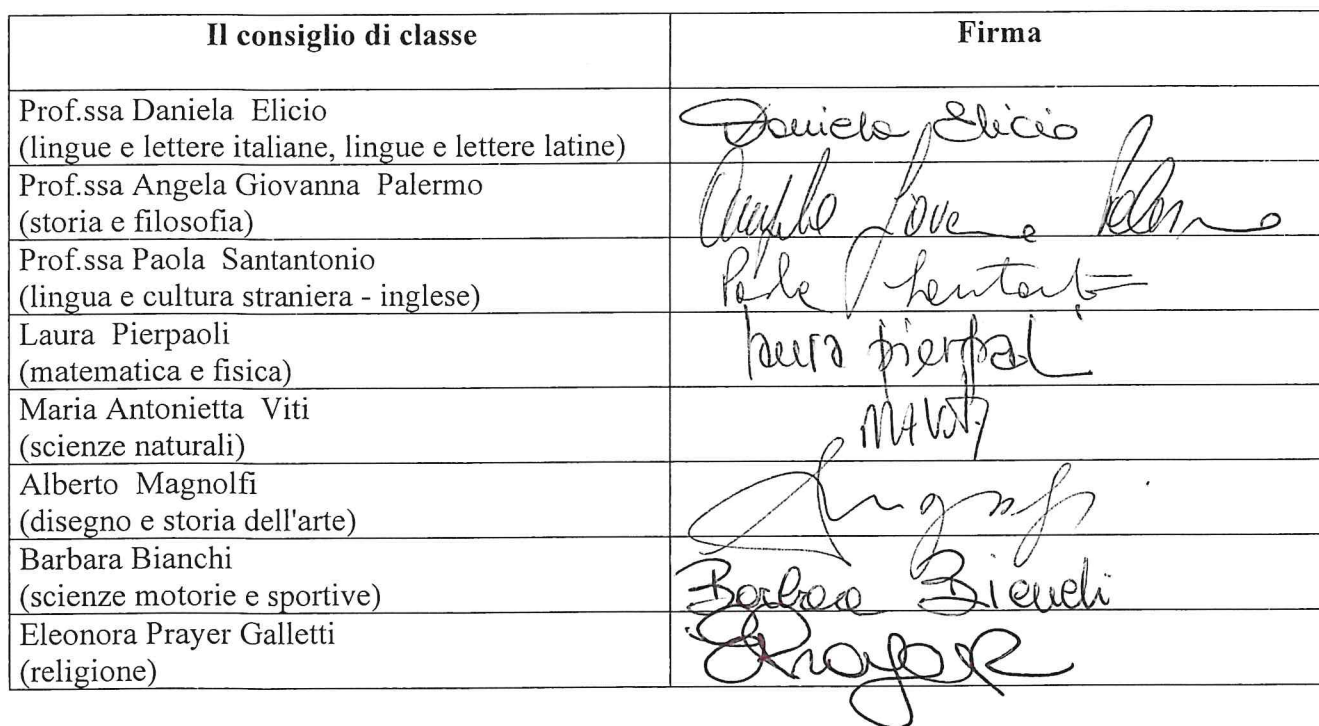 Il consiglio di classe
Firma
Prof.ssa Daniela Elicio
(lingue e lettere italiane, lingue e lettere latine)
Daniela Elicio
Prof.ssa Angela Giovanna Palermo
(storia e filosofia)
Prof.ssa Paola Santantonio
(lingua e cultura straniera - inglese)
Laura Pierpaoli
(matematica e fisica)
laura pierpaoli
Maria Antonietta Viti
(scienze naturali)
MAViti
Alberto Magnolfi
(disegno e storia dell'arte)
Barbara Bianchi
(scienze motorie e sportive)
Barbara Bianchi
Eleonora Prayer Galletti
(religione)